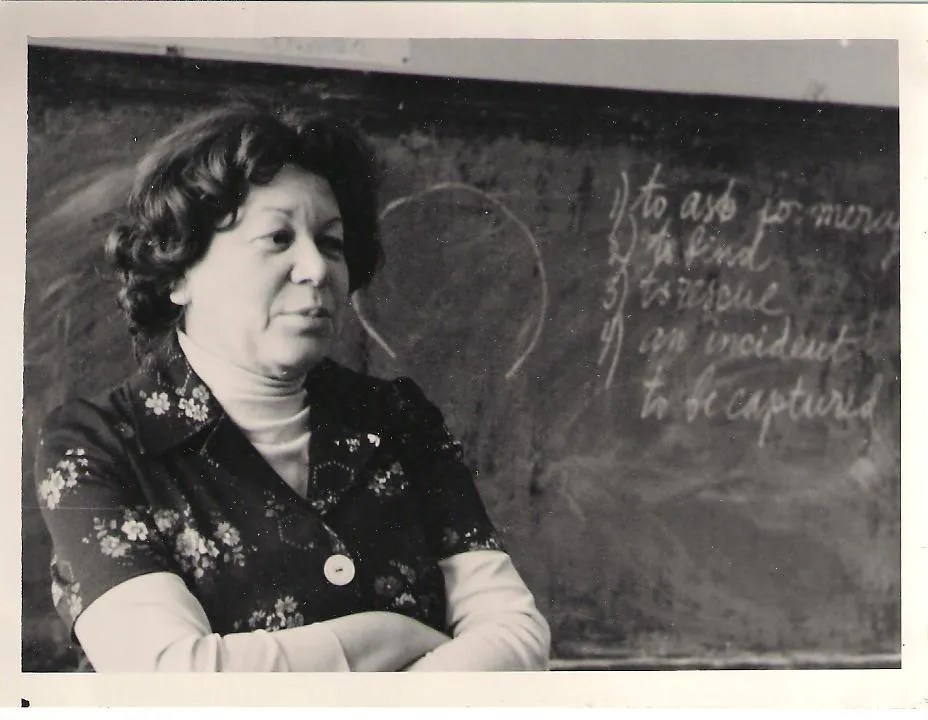 1) to ask for mercy
2) to bind
3) to rescue
4) an incident
to be captured